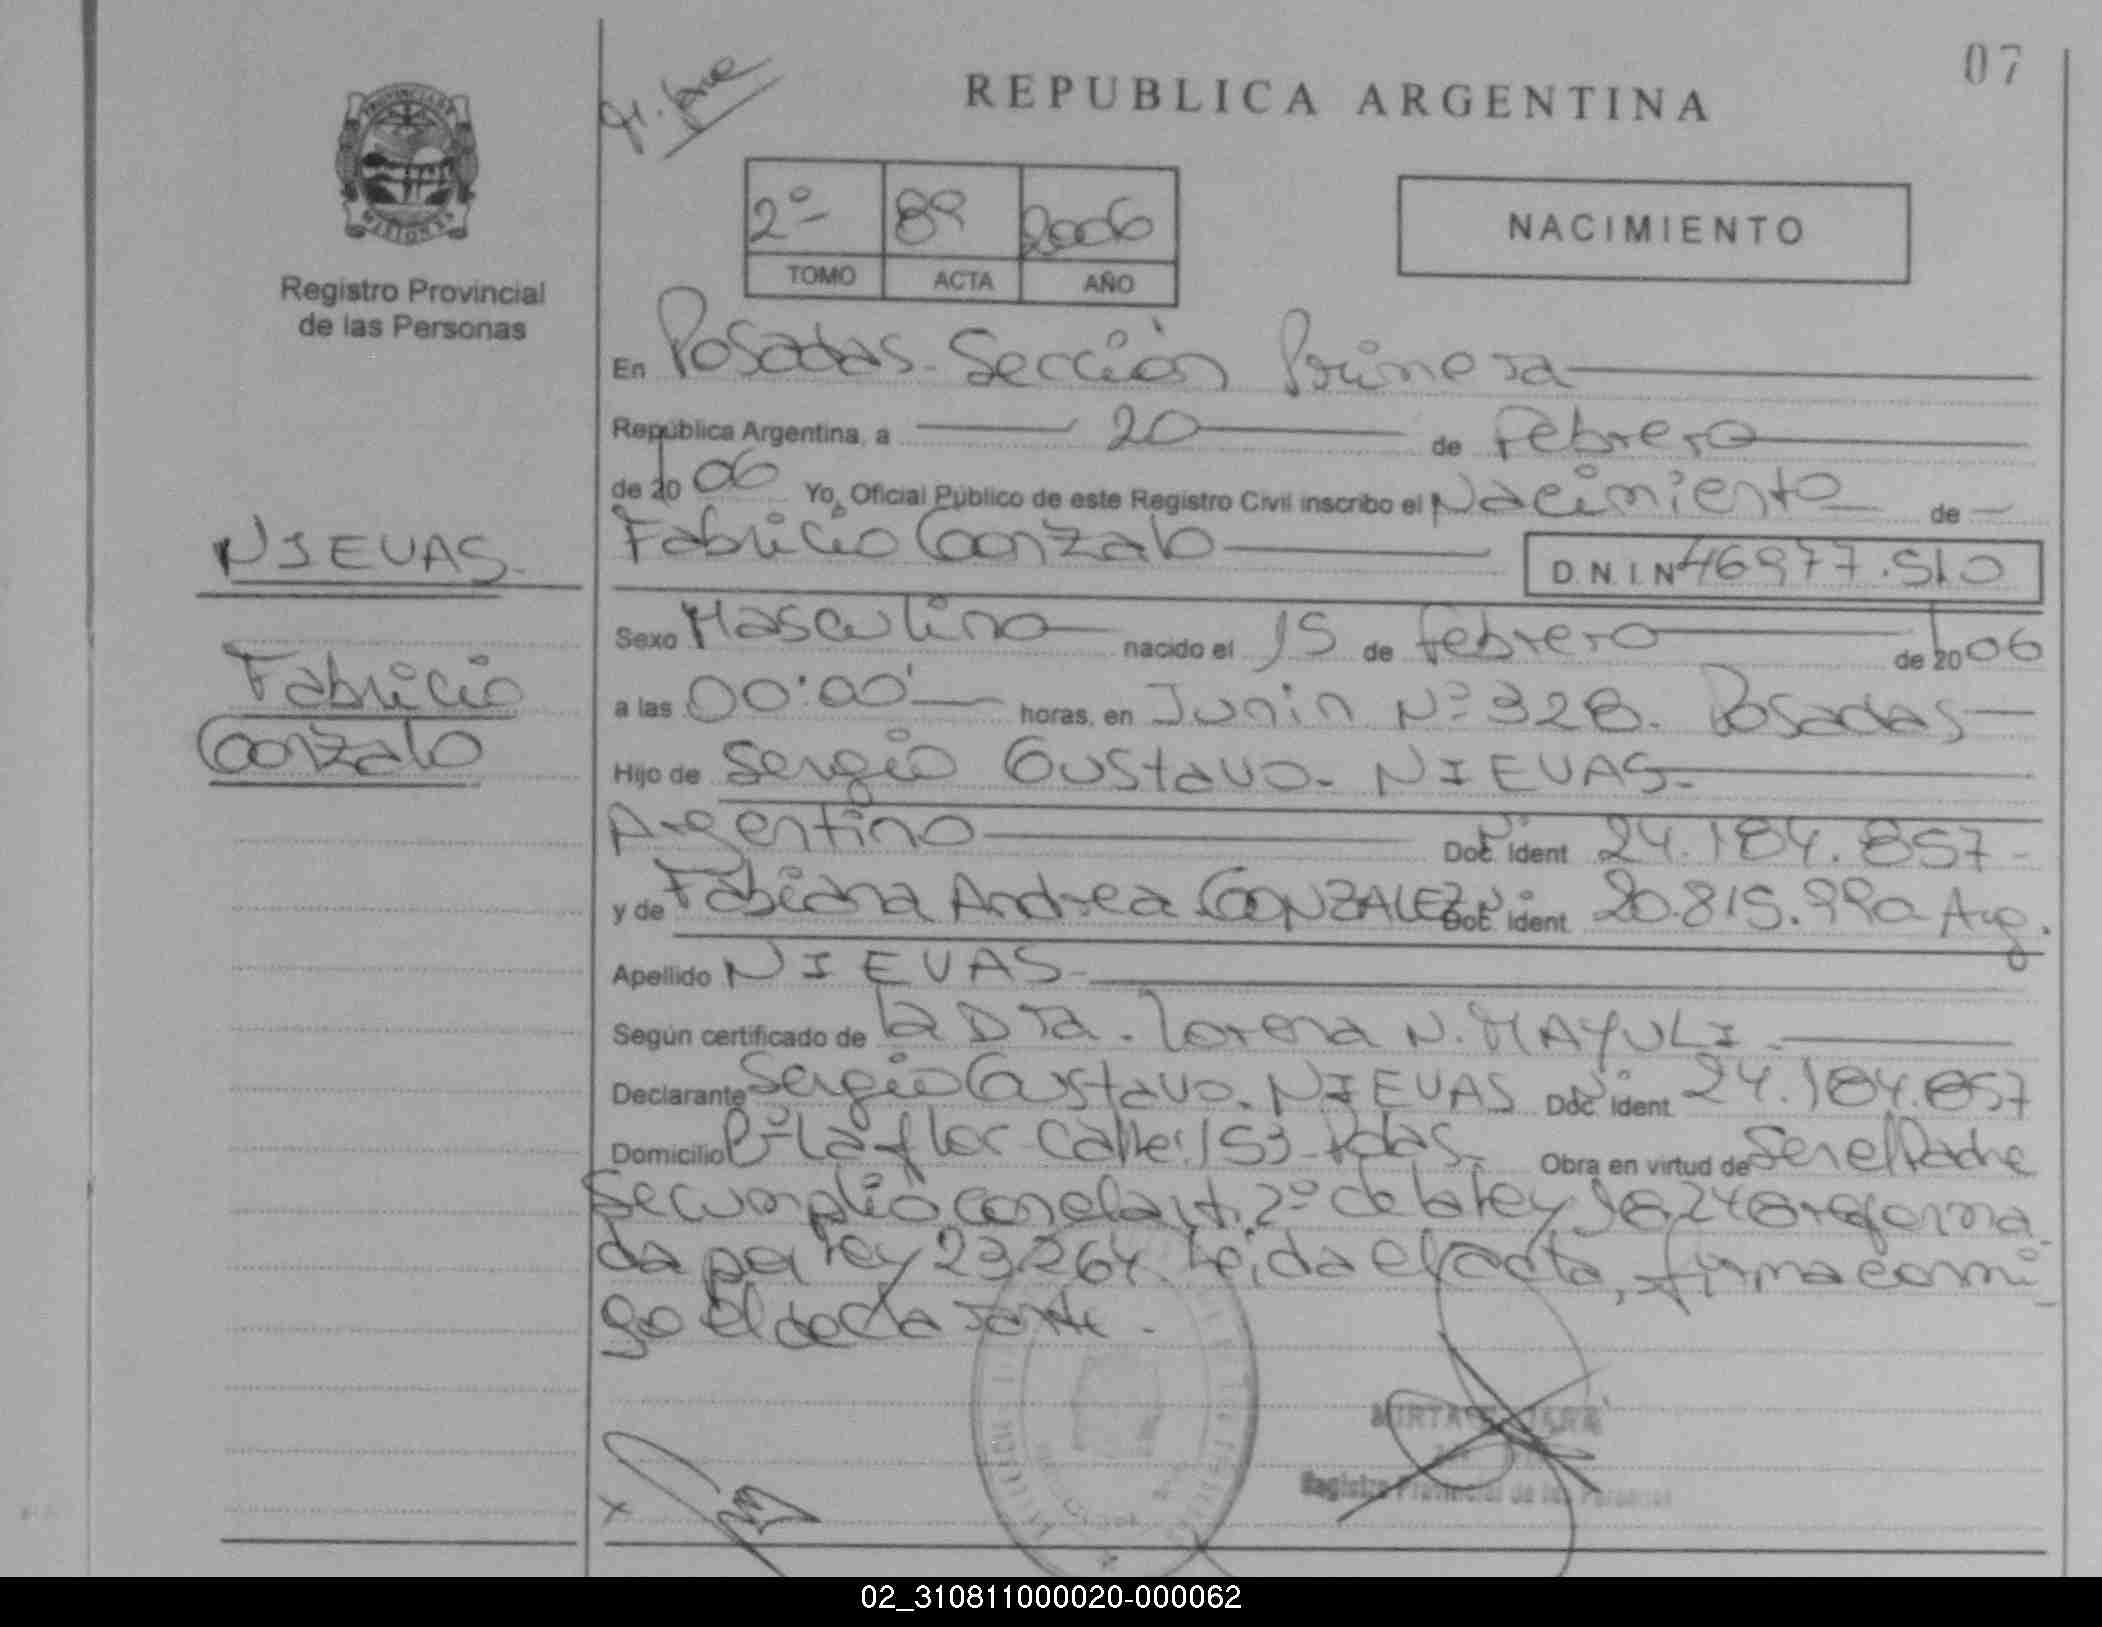 07
REPUBLICA ARGENTINA
PROVINCIA DE
MISIONES
Registro Provincial
de las Personas
2º 89 2006
TOMO ACTA AÑO
NACIMIENTO
En Posadas - Sección Primera
República Argentina, a 20 de Febrero
de 2006 Yo, Oficial Público de este Registro Civil inscribo el Nacimiento de
Fabricio Gonzalo D.N.I.Nº 46977.510
NIEVAS
Fabricio
Gonzalo
Sexo Masculino nacido el 15 de febrero de 2006
a las 00:00' horas, en Junin Nº 328. Posadas
Hijo de Sergio Gustavo. NIEVAS.
Argentino Doc. Ident 24.184.857
y de Fabiana Andrea GONZALEZ Doc. Ident 20.815.990 Arg.
Apellido NIEVAS
Según certificado de la Dra. Lorena N. MAYULI
Declarante Sergio Gustavo. NIEVAS Doc. Ident. 24.184.857
Domicilio Bº La flor Calle: 153 Pdas. Obra en virtud de Ser el Padre
Se cumplio con el art. 2º de la ley 18.248 reforma
da por ley 23.264 Leida el acta, firma conmi
go el declarante.
MIRTA
Registro Provincial de las Personas
02_310811000020-000062